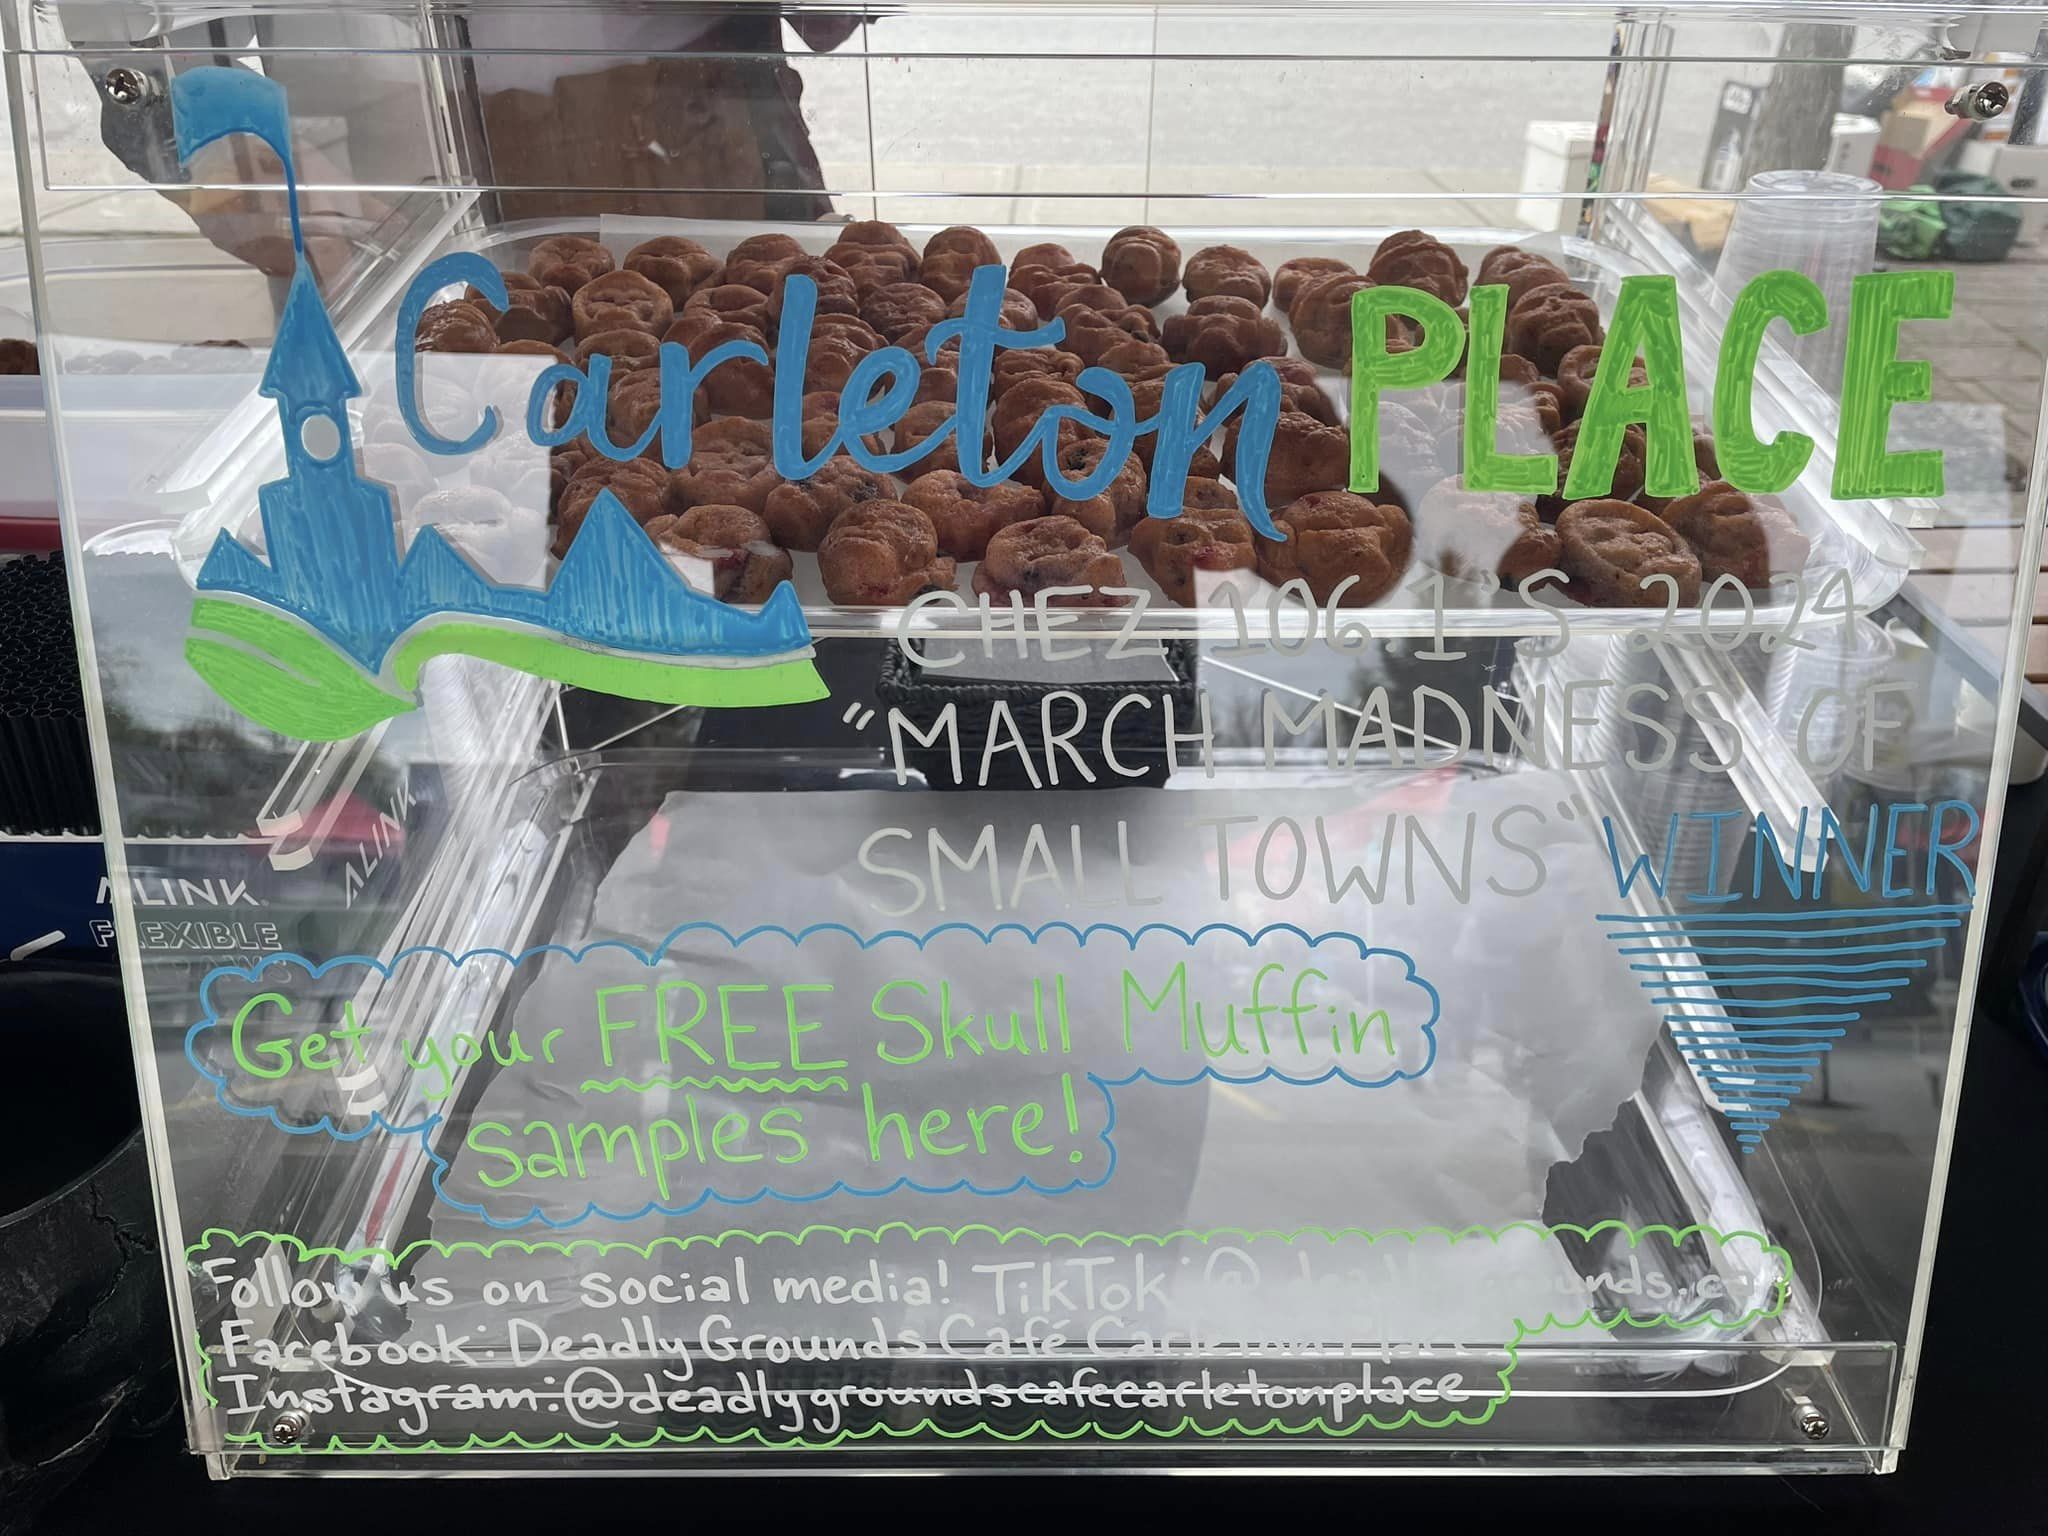 Carleton PLACE
CHEZ 106.1'S 2024
"MARCH MADNESS OF
SMALL TOWNS" WINNER
Get your FREE Skull Muffin
samples here!
Follow us on social media! TikTok: @deadlygrounds.cp
Facebook: Deadly Grounds Café Carleton Place
Instagram: @deadlygroundscafecarletonplace
ALINK
FLEXIBLE
ALINK